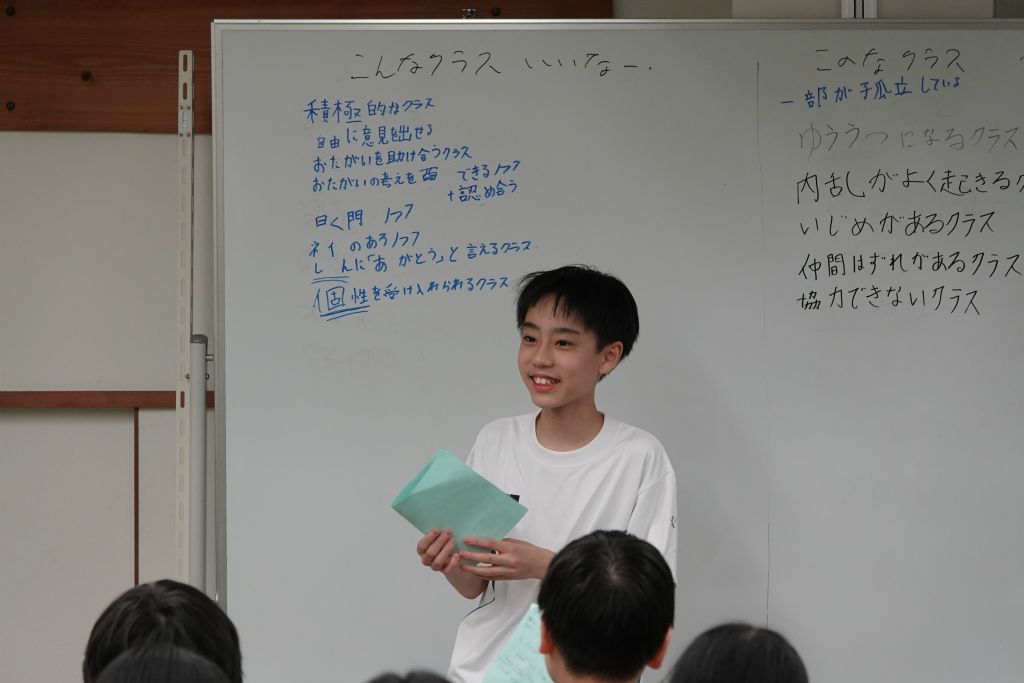 こんなクラス いいなー.
積極的なクラス
自由に意見を出せる
おたがいを助け合うクラス
おたがいの考えを できる
+認め合う
のある
んに「あ がとう」と言えるクラス
個性を受け入れられるクラス
このなクラス
一部が 孤立している
ゆううつになるクラス
内乱がよく起きる
いじめがあるクラス
仲間はずれがあるクラス
協力できないクラス